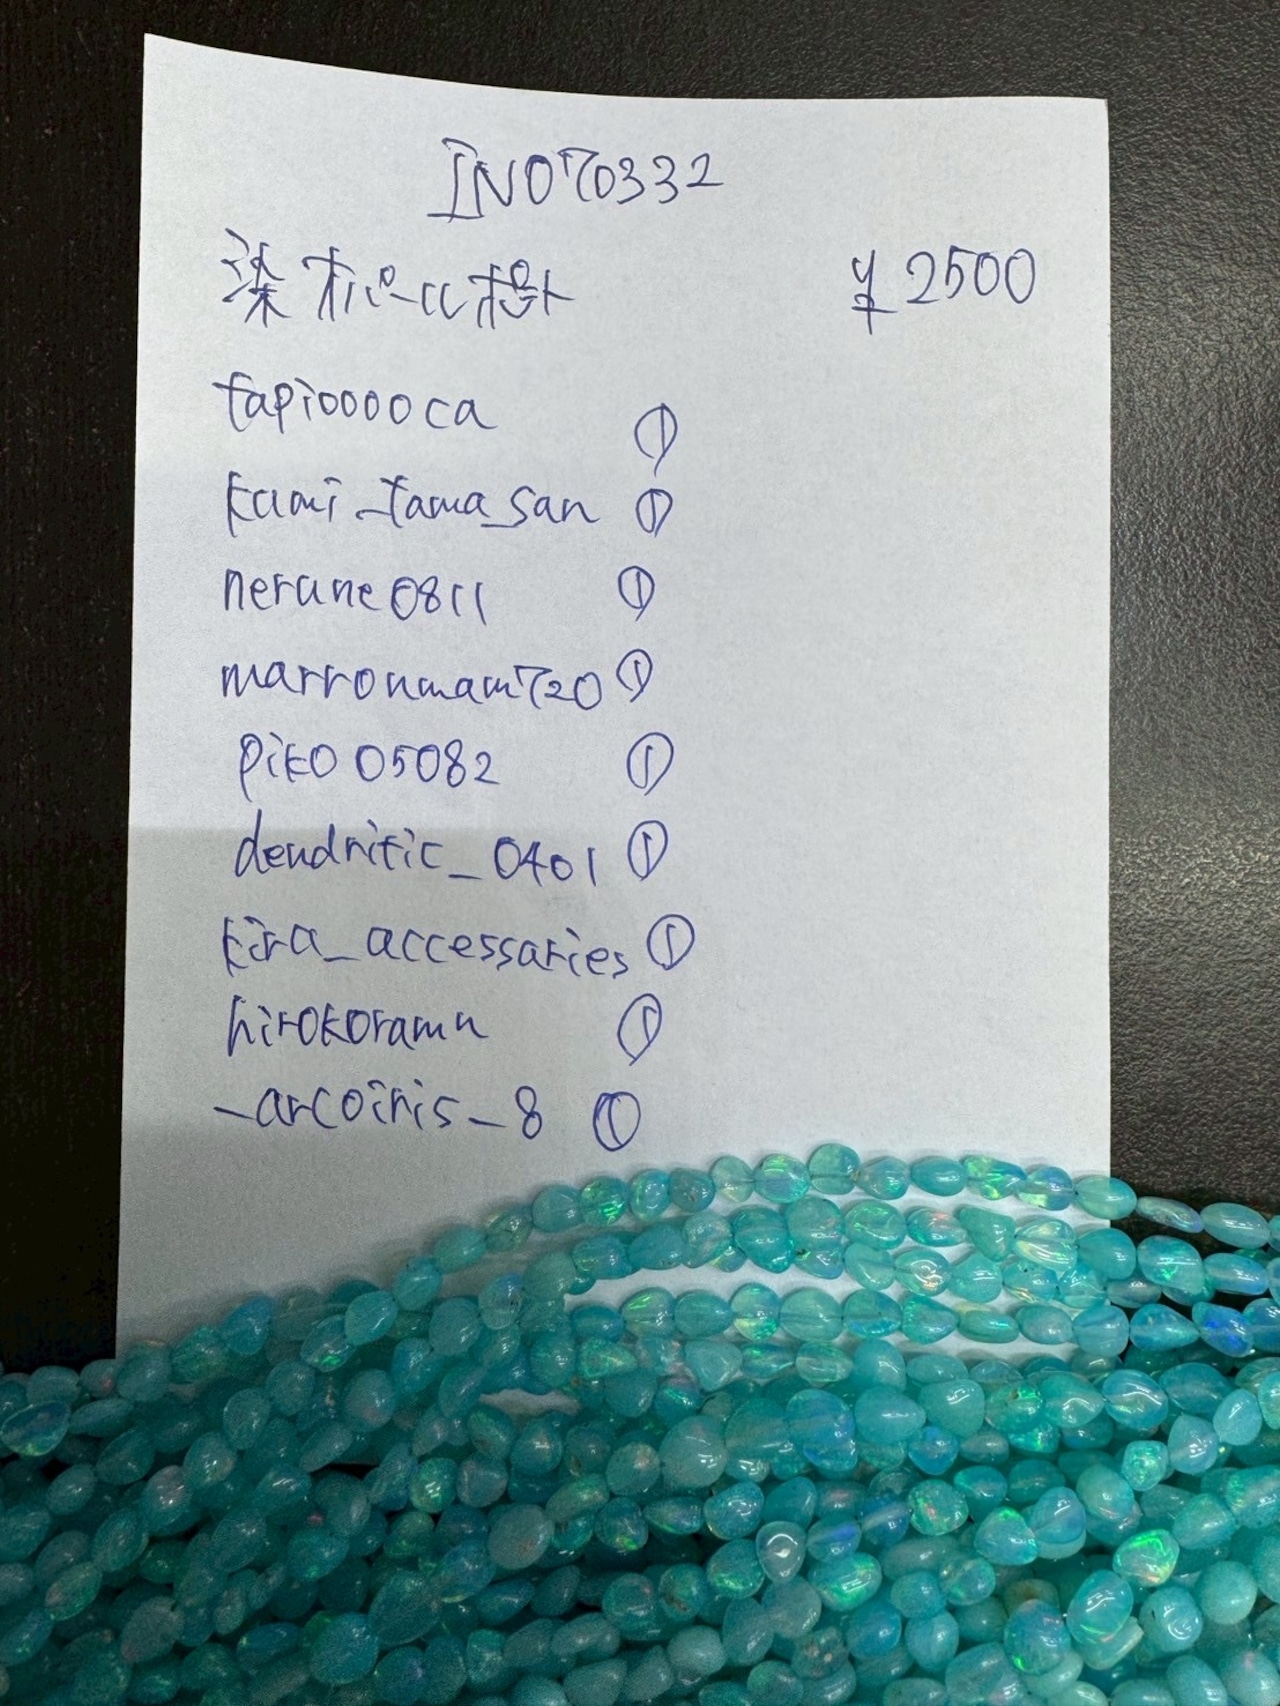 INO70332
染オパール樹 ¥2500
tapioooo ca ①
kami_tama_san ①
nerune0811 ①
marronmam720 ①
piko 05082 ①
dendritic_0401 ①
kira_accessaries ①
hirokoramu ①
_arcoiris_8 ①